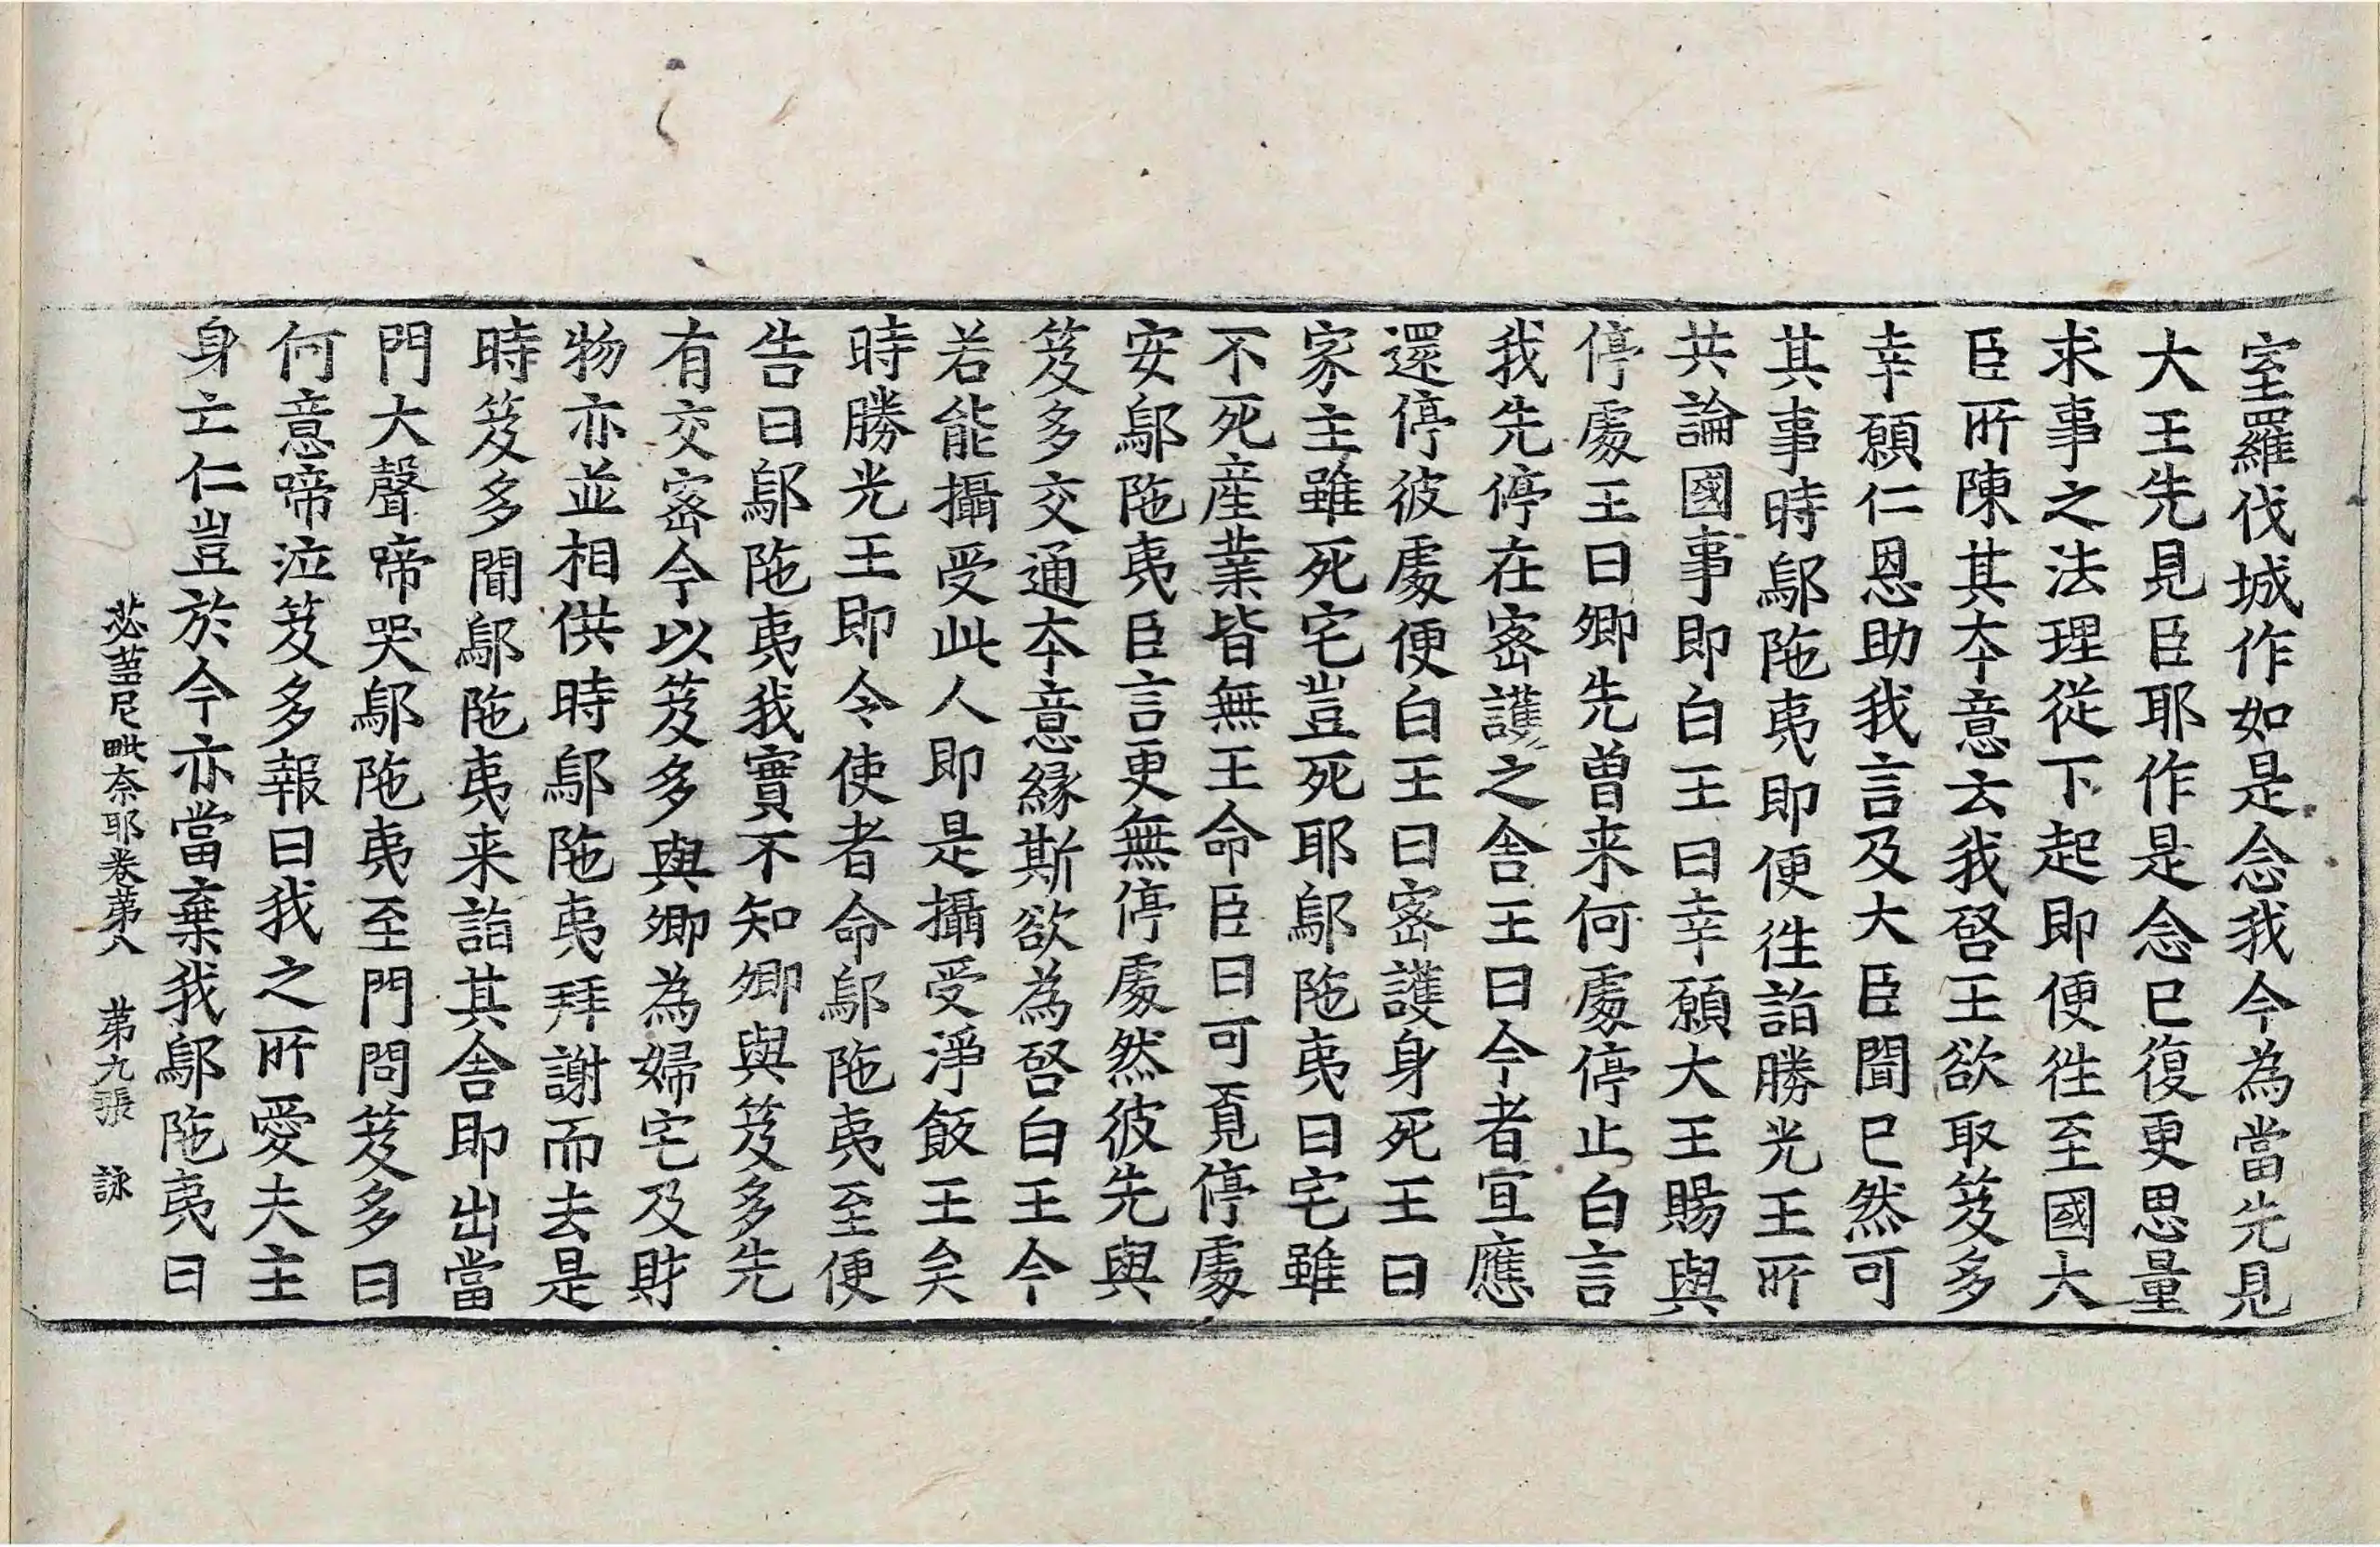 室羅伐城作如是念我今為當先見
大王先見臣耶作是念已復更思量
求事之法理從下起即便往至國大
臣所陳其本意云我啓王欲取笈多
幸願仁恩助我言及大臣聞已然可
其事時鄔陁夷即便往詣勝光王所
共論國事即白王曰幸願大王賜與
停處王曰卿先曾来何處停止白言
我先停在密護之舎王曰今者宜應
還停彼處便白王曰密護身死王曰
家主雖死宅豈死耶鄔陁夷曰宅雖
不死産業皆無王命臣曰可覓停處
安鄔陁夷臣言更無停處然彼先與
笈多交通本意縁斯欲為啓白王今
若能攝受此人即是攝受淨飯王矣
時勝光王即令使者命鄔陁夷至便
告曰鄔陁夷我實不知卿與笈多先
有交密今以笈多與卿為婦宅及財
物亦並相供時鄔陁夷拜謝而去是
時笈多聞鄔陁夷来詣其舎即出當
門大聲啼哭鄔陁夷至門問笈多曰
何意啼泣笈多報曰我之所愛夫主
身亡仁豈於今亦當棄我鄔陁夷曰
苾蒭尼毗奈耶卷苐八 苐九張 詠